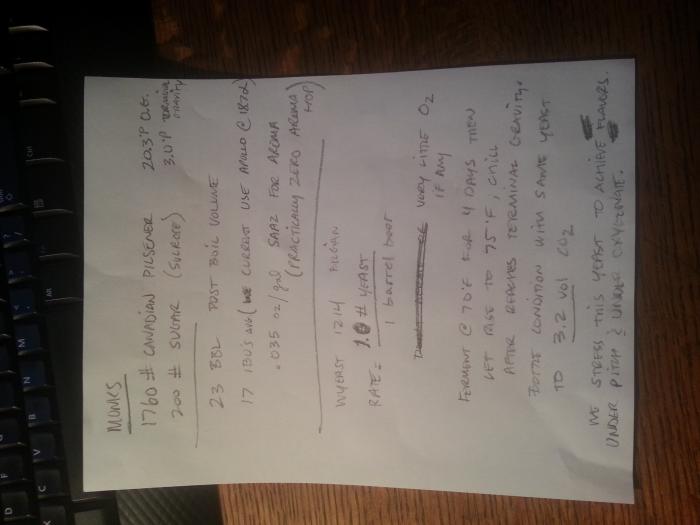 MONKS
1760 # CANADIAN PILSENER 20.3°P O.E.
200 # SUGAR (SUCROSE) 3.0°P TERMINAL GRAVITY
23 BBL POST BOIL VOLUME
17 IBU'S AVG (WE CURRENT USE APOLLO @ 18%)
.035 oz/gal SAAZ FOR AROMA
(PRACTICALLY ZERO AROMA HOP)
WYEAST 1214
RATE = 1.0 # YEAST
1 barrel beer
VERY LITTLE O2
IF ANY
FERMENT @ 70°F FOR 4 DAYS THEN
LET RISE TO 75°F, CHILL
AFTER REACHES TERMINAL GRAVITY.
BOTTLE CONDITION WITH SAME YEAST
TO 3.2 VOL CO2
WE STRESS THIS YEAST TO ACHIEVE FLAVORS.
UNDER PITCH & UNDER OXYGENATE.